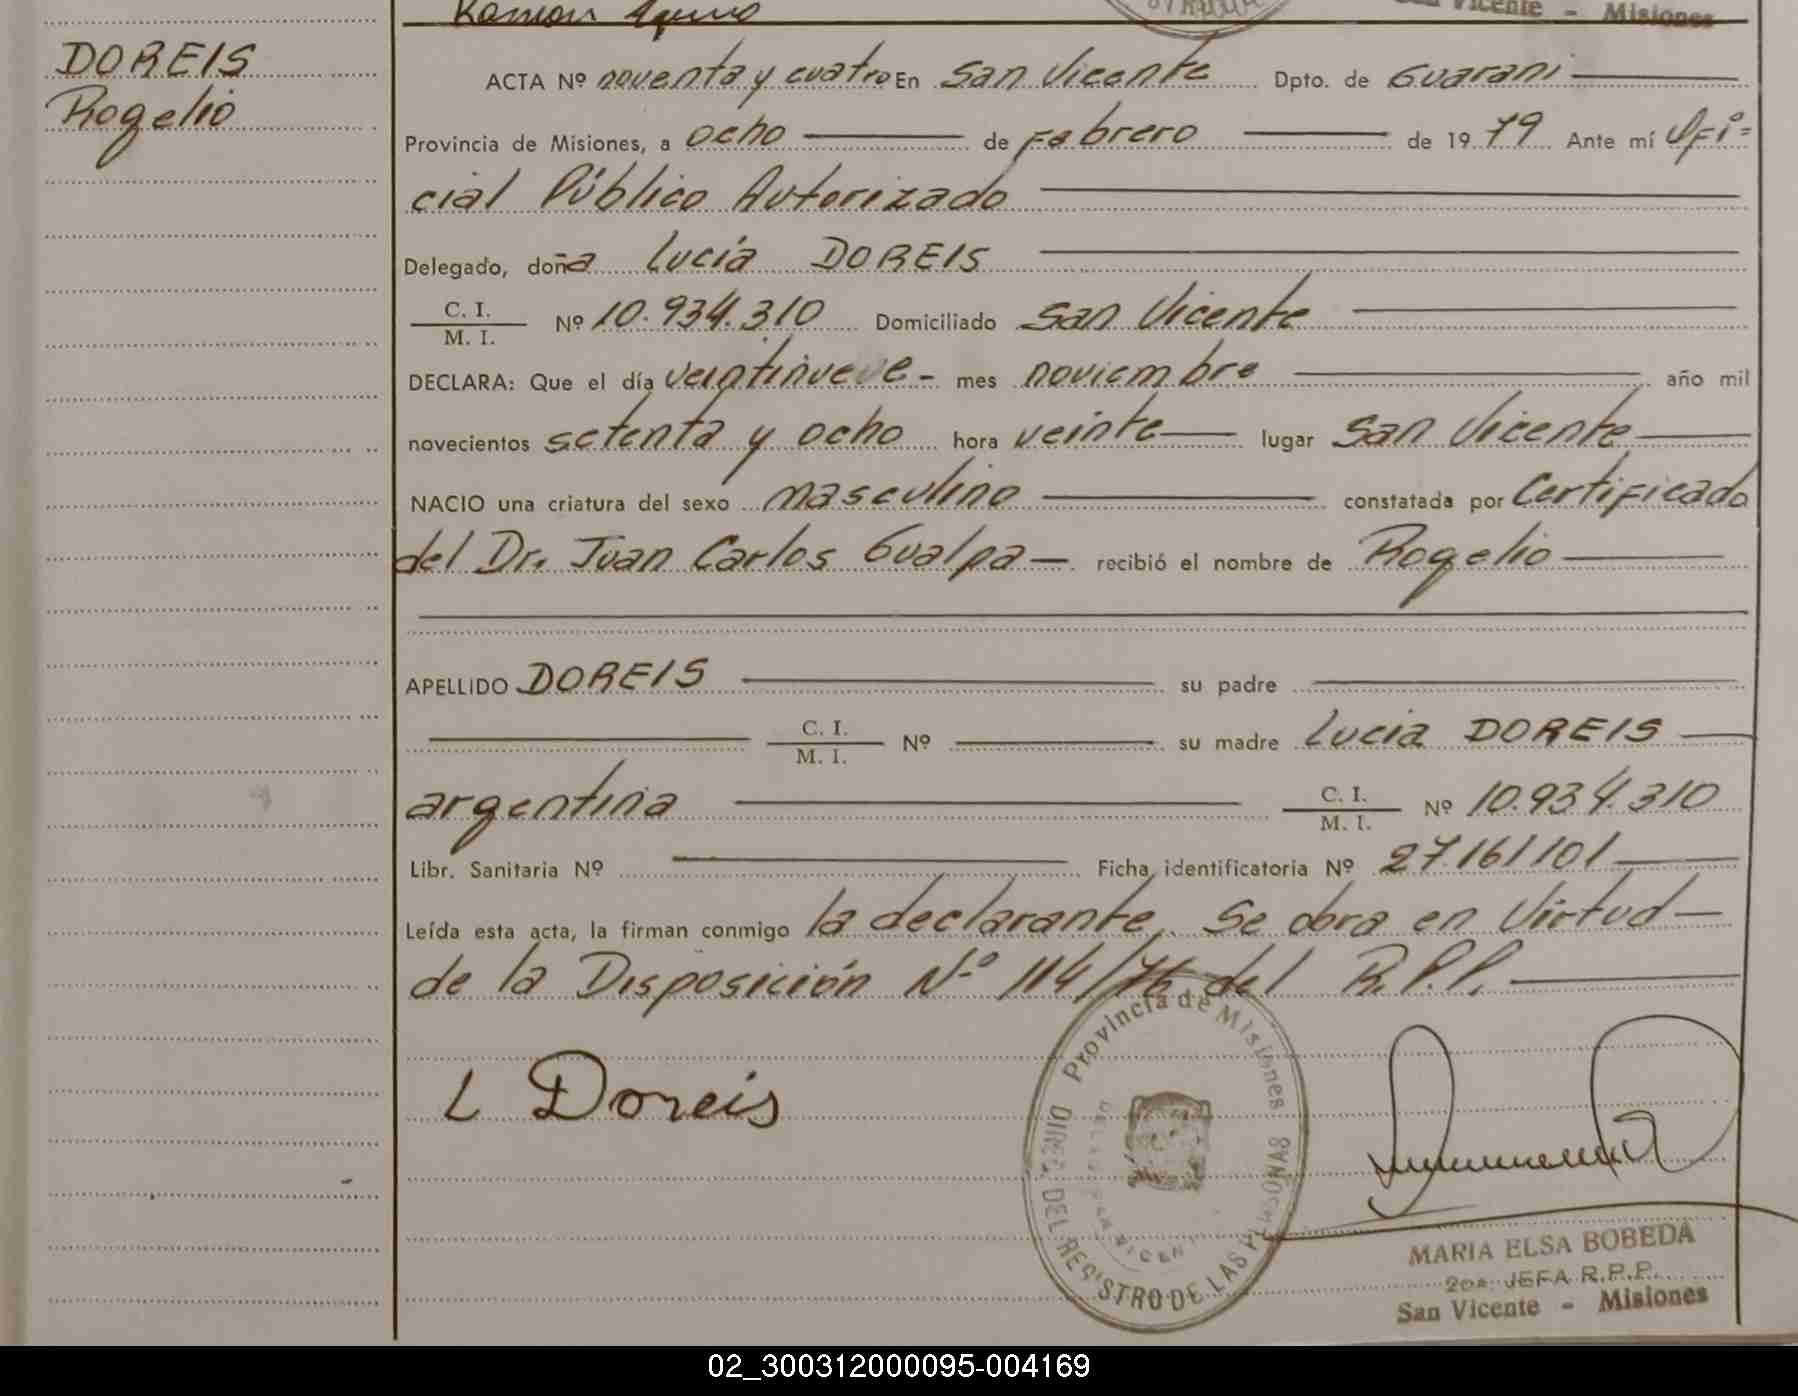 Ramon
San Vicente - Misiones
DOREIS
Rogelio
ACTA Nº noventa y cuatro En San Vicente Dpto. de Guarani
Provincia de Misiones, a ocho de Febrero de 1979 Ante mí Ofi=
cial Público Autorizado
Delegado, doña Lucía DOREIS
C. I.
M. I. Nº 10.934.310 Domiciliado San Vicente
DECLARA: Que el día veintinueve - mes noviembre año mil
novecientos setenta y ocho hora veinte lugar San Vicente
NACIO una criatura del sexo masculino constatada por Certificado
del Dr. Juan Carlos Gualpa recibió el nombre de Rogelio
APELLIDO DOREIS su padre
C. I.
M. I. Nº su madre Lucia DOREIS
argentina C. I.
M. I. Nº 10.934.310
Libr. Sanitaria Nº Ficha identificatoria Nº 27.161.101
Leída esta acta, la firman conmigo la declarante. Se obra en Virtud
de la Disposición Nº 114/76 del R.P.P.
L Doreis
Provincia de Misiones
DIREC. DEL REGISTRO DE LAS PERSONAS
MARIA ELSA BOBEDA
2da. JEFA R.P.P.
San Vicente - Misiones
02_300312000095-004169